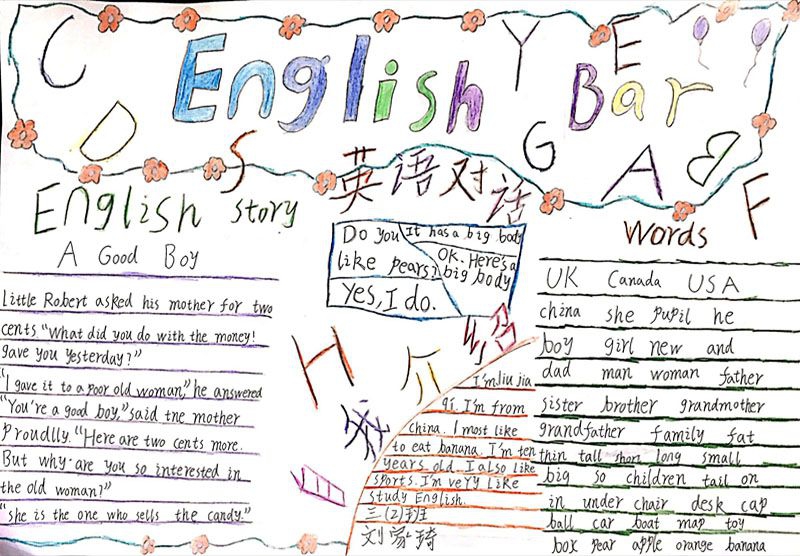 C
D
S
English
Y
E
Bar
G
A
B
F
English story
A Good Boy
little Robert asked his mother for two
cents "What did you do with the money!
gave you yesterday?"
"I gave it to a poor old woman," he answered
"You're a good boy," said tne mother
Proudlly. "Here are two cents more.
But why are you so interested in
the old woman?"
"she is the one who sells the candy."
英语对话
Do you
like pears?
Yes, I do.
It has a big body
OK. Here's a
big body
H
自我介绍
I'm liu jia
qi. I'm from
china. I most like
to eat banana. I'm ten
years old. I also like
sports. I'm very like
study English.
三(2)班
刘家琦
words
UK Canada USA
china she pupil he
boy girl new and
dad man woman father
sister brother grandmother
grandfather family fat
thin tall short long small
big so children tail on
in under chair desk cap
ball car boat map toy
box pear apple orange banana